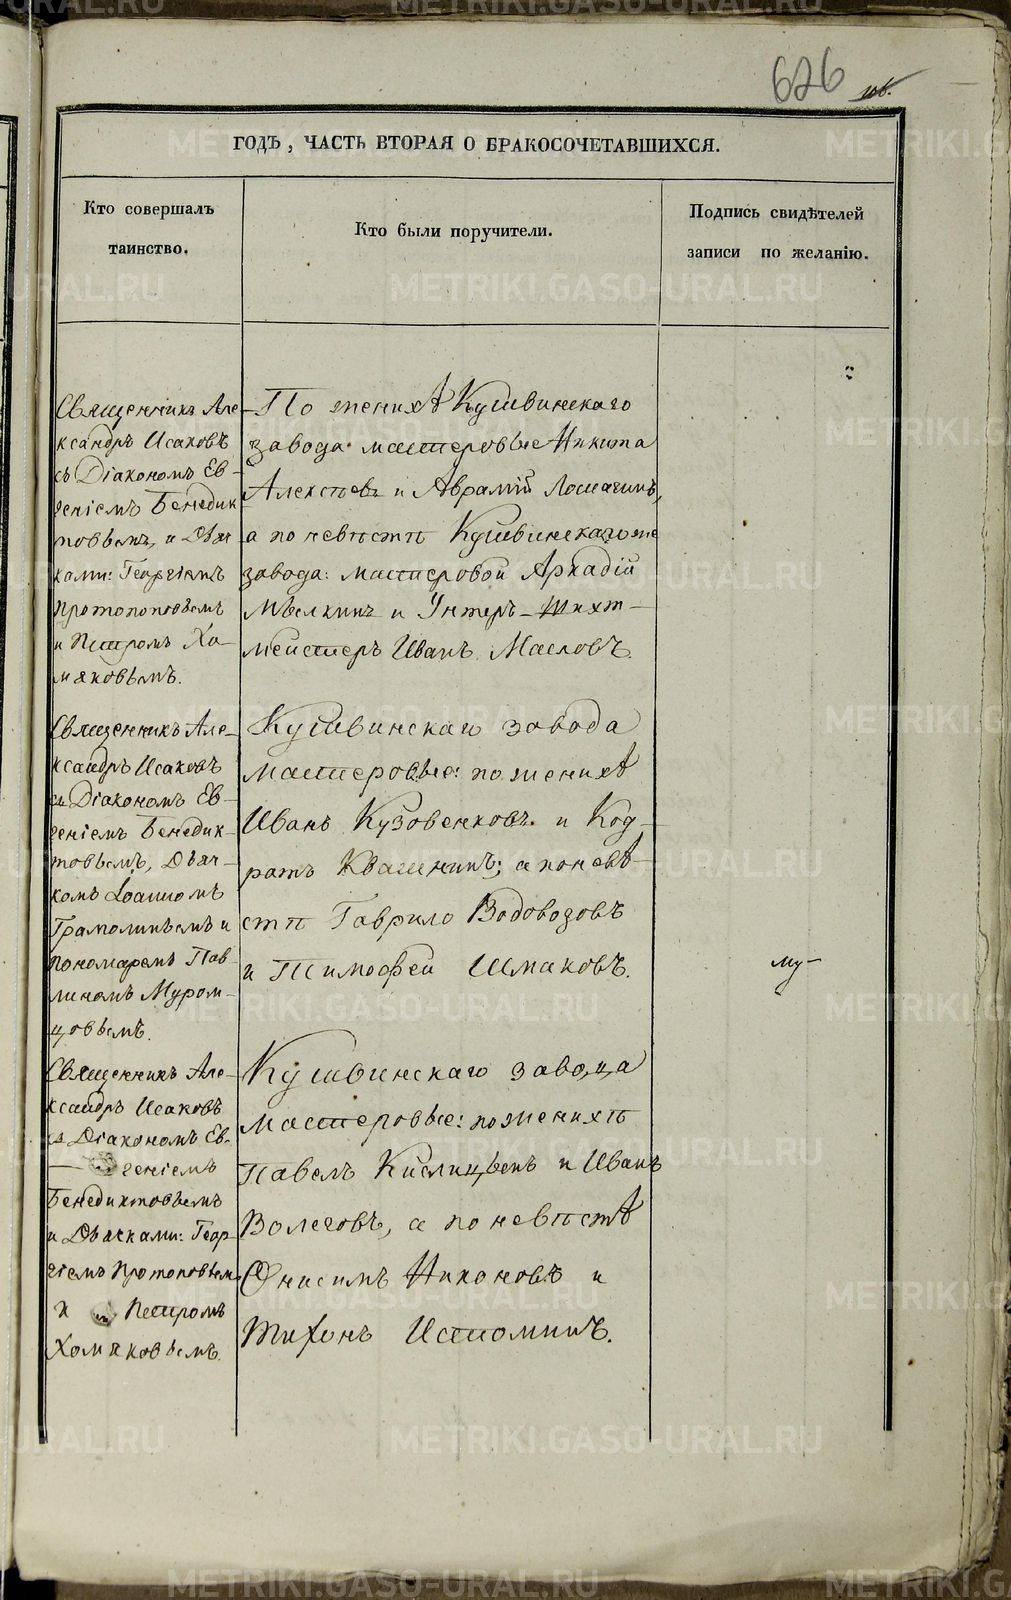 626
ГОДЪ, ЧАСТЬ ВТОРАЯ О БРАКОСОЧЕТАВШИХСЯ.
Кто совершалъ
таинство.
Кто были поручители.
Подпись свидѣтелей
записи по желанію.
Священникъ Але-
ксандръ Исаковъ
съ Діакономъ Ев-
геніемъ Бенедик
товымъ, и Дьяч
ками: Георгіемъ
Протопоповымъ
и Петромъ Хо-
мяковымъ.
По женихѣ Кушвинскаго
завода мастеровые Никита
Алексѣевъ и Аврамій Лошагинъ,
а по невѣстѣ Кушвинскагоже
завода: мастеровой Аркадій
Мѣлкинъ и Унтеръ-Шихт-
мейстеръ Иванъ Масловъ.
Священникъ Але-
ксандръ Исаковъ
съ Діакономъ Ев-
геніемъ Бенедик-
товымъ, Дьяч-
комъ Іоанномъ
Грамолинымъ и
пономаремъ Пав-
линомъ Муром-
цовымъ.
Кушвинскаго завода
мастеровые: по женихѣ
Иванъ Кузовенковъ и Код-
ратъ Квашнинъ; а по невѣ-
стѣ Гаврило Водовозовъ
и Тимофей Шмаковъ.
му-
Священникъ Але-
ксандръ Исаковъ
съ Діакономъ Ев-
геніемъ
Бенедиктовымъ
и Дьячками: Геор-
гіемъ Протоповым
и Петромъ
Хомяковымъ.
Кушвинскаго завода
мастеровые: по женихѣ
Павелъ Кислицынъ и Иванъ
Волеговъ, а по невѣстѣ
Онисимъ Никоновъ и
Тихонъ Истоминъ.
METRIKI.GASO-URAL.RU